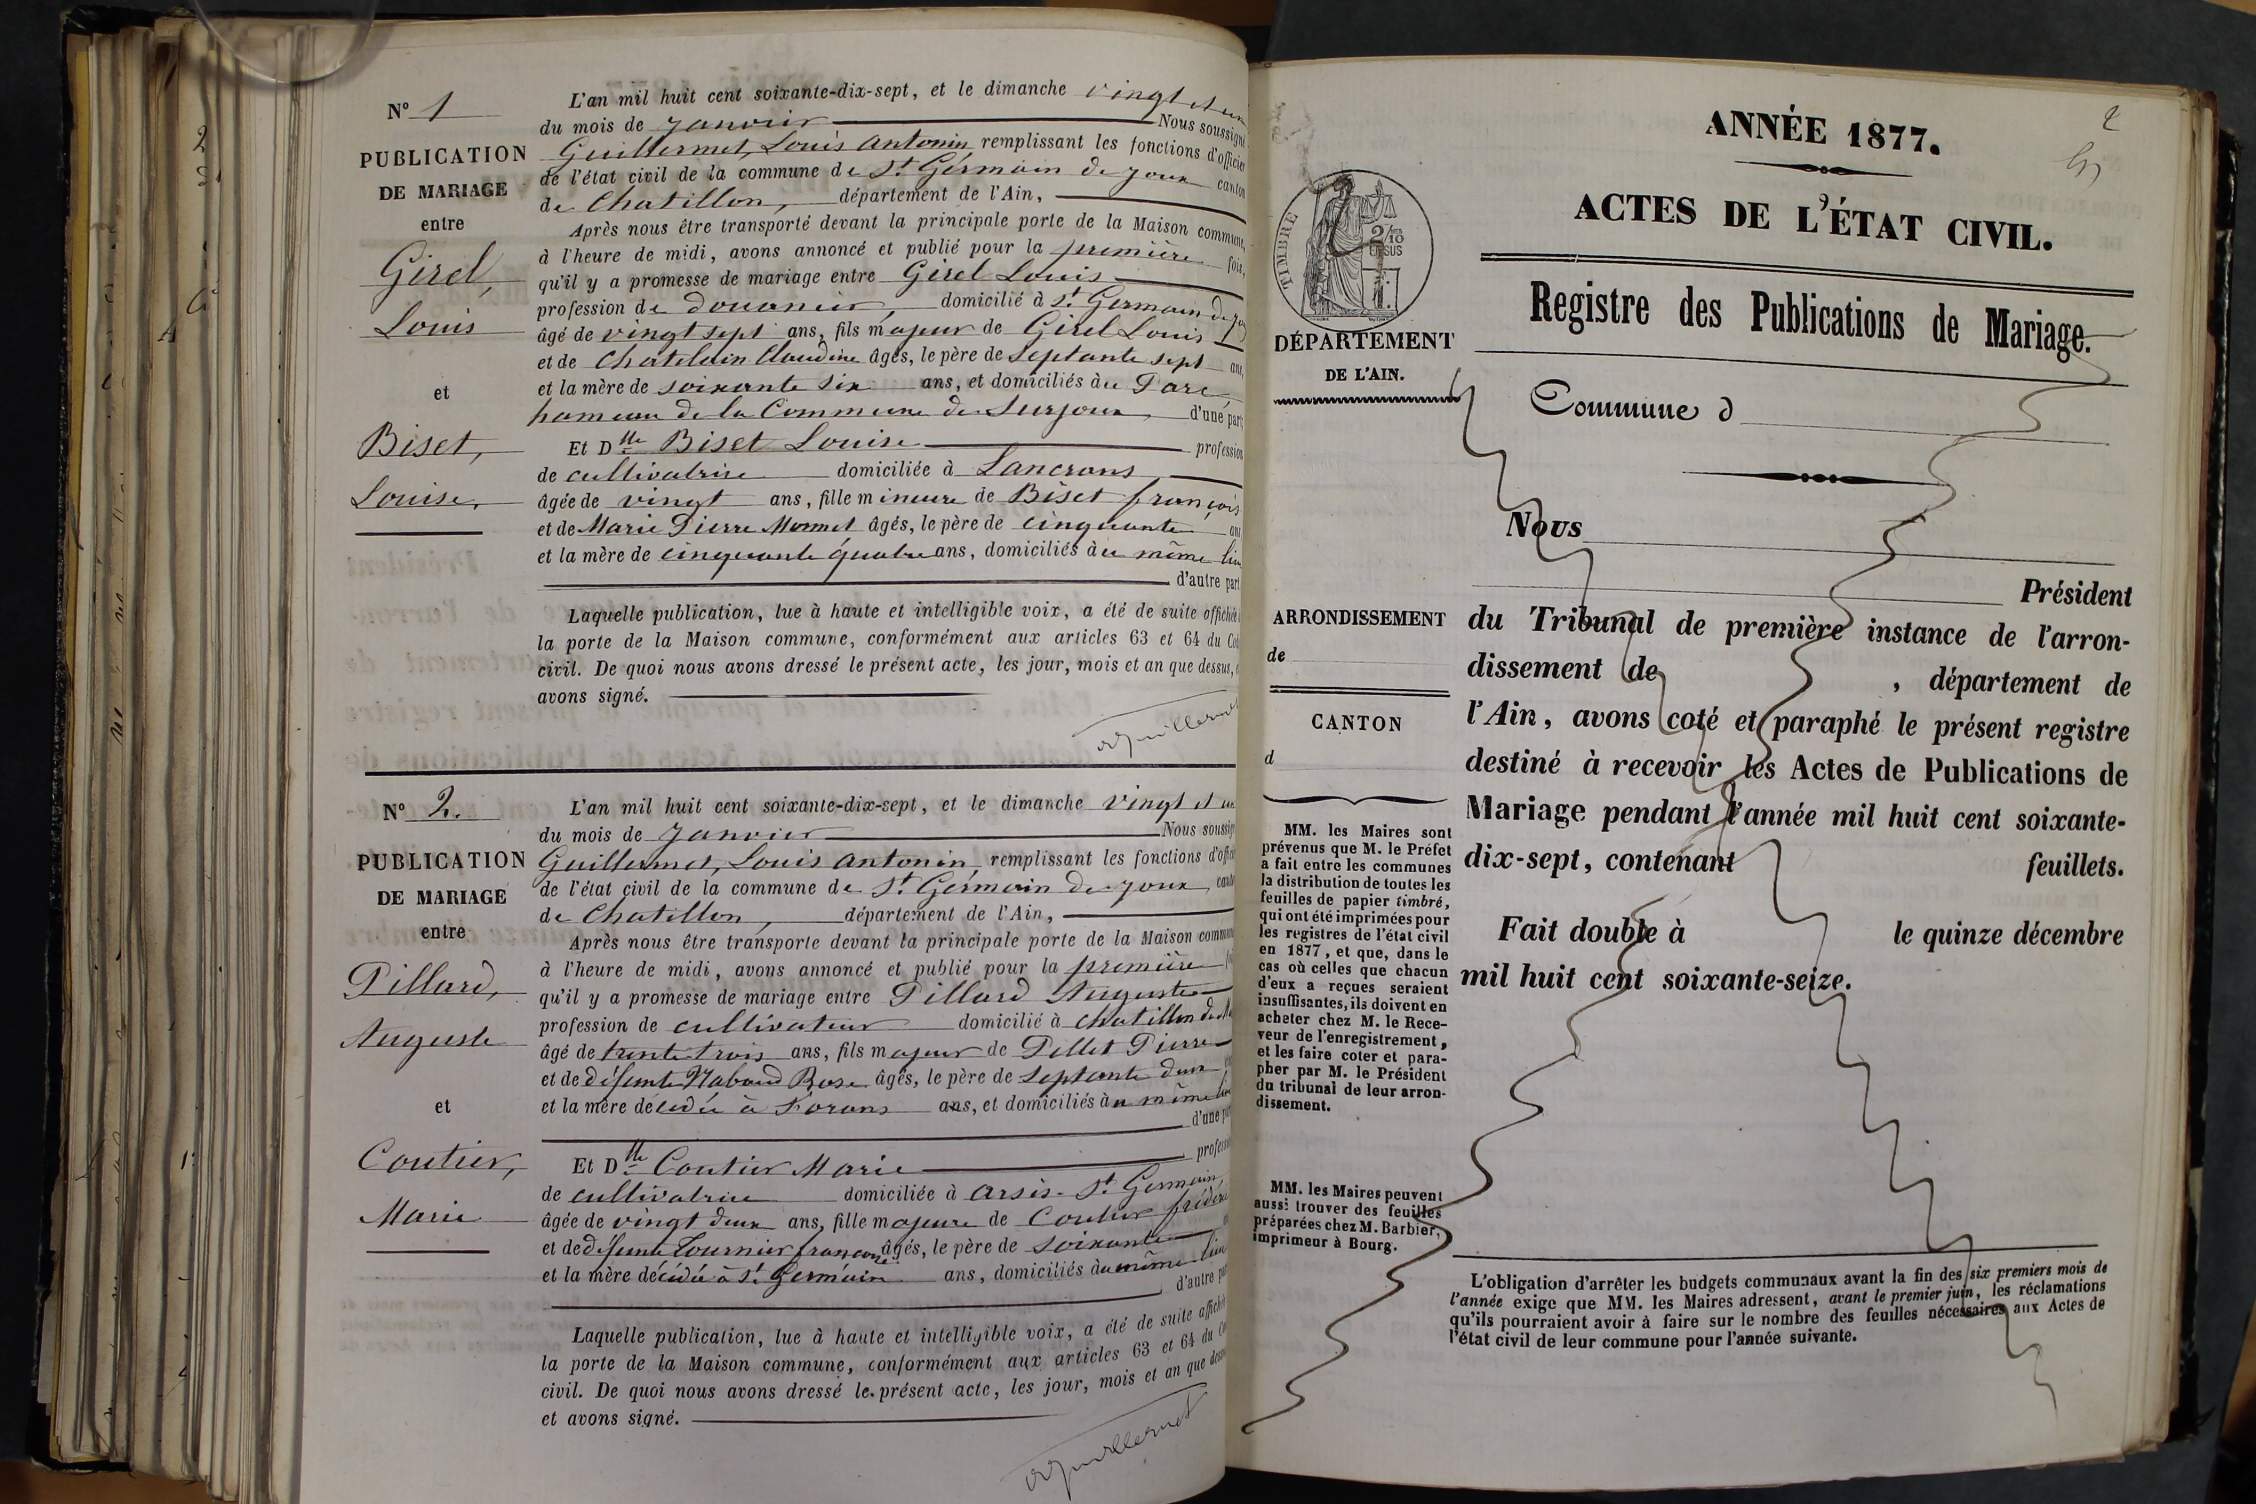 N° 1
PUBLICATION
DE MARIAGE
entre
Girel,
Louis
et
Biset,
Louise,
L'an mil huit cent soixante-dix-sept, et le dimanche vingt et un
du mois de Janvier Nous soussigné
Guillermet, Louis Antonin, remplissant les fonctions d'officier
de l'état civil de la commune de St Germain de Joux canton
de Chatillon, département de l'Ain,
Après nous être transporté devant la principale porte de la Maison commune,
à l'heure de midi, avons annoncé et publié pour la première fois,
qu'il y a promesse de mariage entre Girel Louis
profession de douanier, domicilié à St Germain de Joux
âgé de vingt sept ans, fils majeur de Girel Louis
et de Chatelain Claudine âgés, le père de septante sept ans,
et la mère de soixante six ans, et domiciliés au Parc,
hameau de la Commune de Surjoux, d'une part
Et Dlle Biset Louise profession
de cultivatrice domiciliée à Lancrans
âgée de vingt ans, fille mineure de Biset françois
et de Marie Pierre Monnet âgés, le père de cinquante ans
et la mère de cinquante quatre ans, domiciliés au même lieu
d'autre part.
Laquelle publication, lue à haute et intelligible voix, a été de suite affichée
la porte de la Maison commune, conformément aux articles 63 et 64 du Code
civil. De quoi nous avons dressé le présent acte, les jour, mois et an que dessus,
avons signé.
Guillermet
N° 2.
PUBLICATION
DE MARIAGE
entre
Pillard,
Auguste
et
Coutier,
Marie
L'an mil huit cent soixante-dix-sept, et le dimanche vingt et un
du mois de Janvier Nous soussigné
Guillermet, Louis Antonin, remplissant les fonctions d'officier
de l'état civil de la commune de St Germain de Joux, canton
de Chatillon, département de l'Ain,
Après nous être transporté devant la principale porte de la Maison commune
à l'heure de midi, avons annoncé et publié pour la première
qu'il y a promesse de mariage entre Pillard Auguste
profession de cultivateur domicilié à Chatillon de
âgé de trente trois ans, fils majeur de Pillet Pierre
et de défunte Nabaud Rose âgés, le père de septante deux
et la mère décédée à Forans ans, et domiciliés au même lieu
d'une part
Et Dlle Coutier Marie profession
de cultivatrice domiciliée à Arsis-St Germain,
âgée de vingt deux ans, fille majeure de Coutier fréderic
et de défunte Tournier françoise âgés, le père de soixante
et la mère décédée à St Germain ans, domiciliés au même lieu
d'autre part
Laquelle publication, lue à haute et intelligible voix, a été de suite affichée
la porte de la Maison commune, conformément aux articles 63 et 64 du Code
civil. De quoi nous avons dressé le présent acte, les jour, mois et an que dessus
et avons signé.
Guillermet
2
ANNÉE 1877.
ACTES DE L'ÉTAT CIVIL.
Registre des Publications de Mariage.
TIMBRE
2/10
EN SUS
DÉPARTEMENT
DE L'AIN.
ARRONDISSEMENT
de
CANTON
d
MM. les Maires sont
prévenus que M. le Préfet
a fait entre les communes
la distribution de toutes les
feuilles de papier timbré,
qui ont été imprimées pour
les registres de l'état civil
en 1877, et que, dans le
cas où celles que chacun
d'eux a reçues seraient
insuffisantes, ils doivent en
acheter chez M. le Rece-
veur de l'enregistrement,
et les faire coter et para-
pher par M. le Président
du tribunal de leur arron-
dissement.
MM. les Maires peuvent
aussi trouver des feuilles
préparées chez M. Barbier,
imprimeur à Bourg.
Commune d
Nous
Président
du Tribunal de première instance de l'arron-
dissement de , département de
l'Ain, avons coté et paraphé le présent registre
destiné à recevoir les Actes de Publications de
Mariage pendant l'année mil huit cent soixante-
dix-sept, contenant feuillets.
Fait double à le quinze décembre
mil huit cent soixante-seize.
L'obligation d'arrêter les budgets communaux avant la fin des six premiers mois de
l'année exige que MM. les Maires adressent, avant le premier juin, les réclamations
qu'ils pourraient avoir à faire sur le nombre des feuilles nécessaires aux Actes de
l'état civil de leur commune pour l'année suivante.